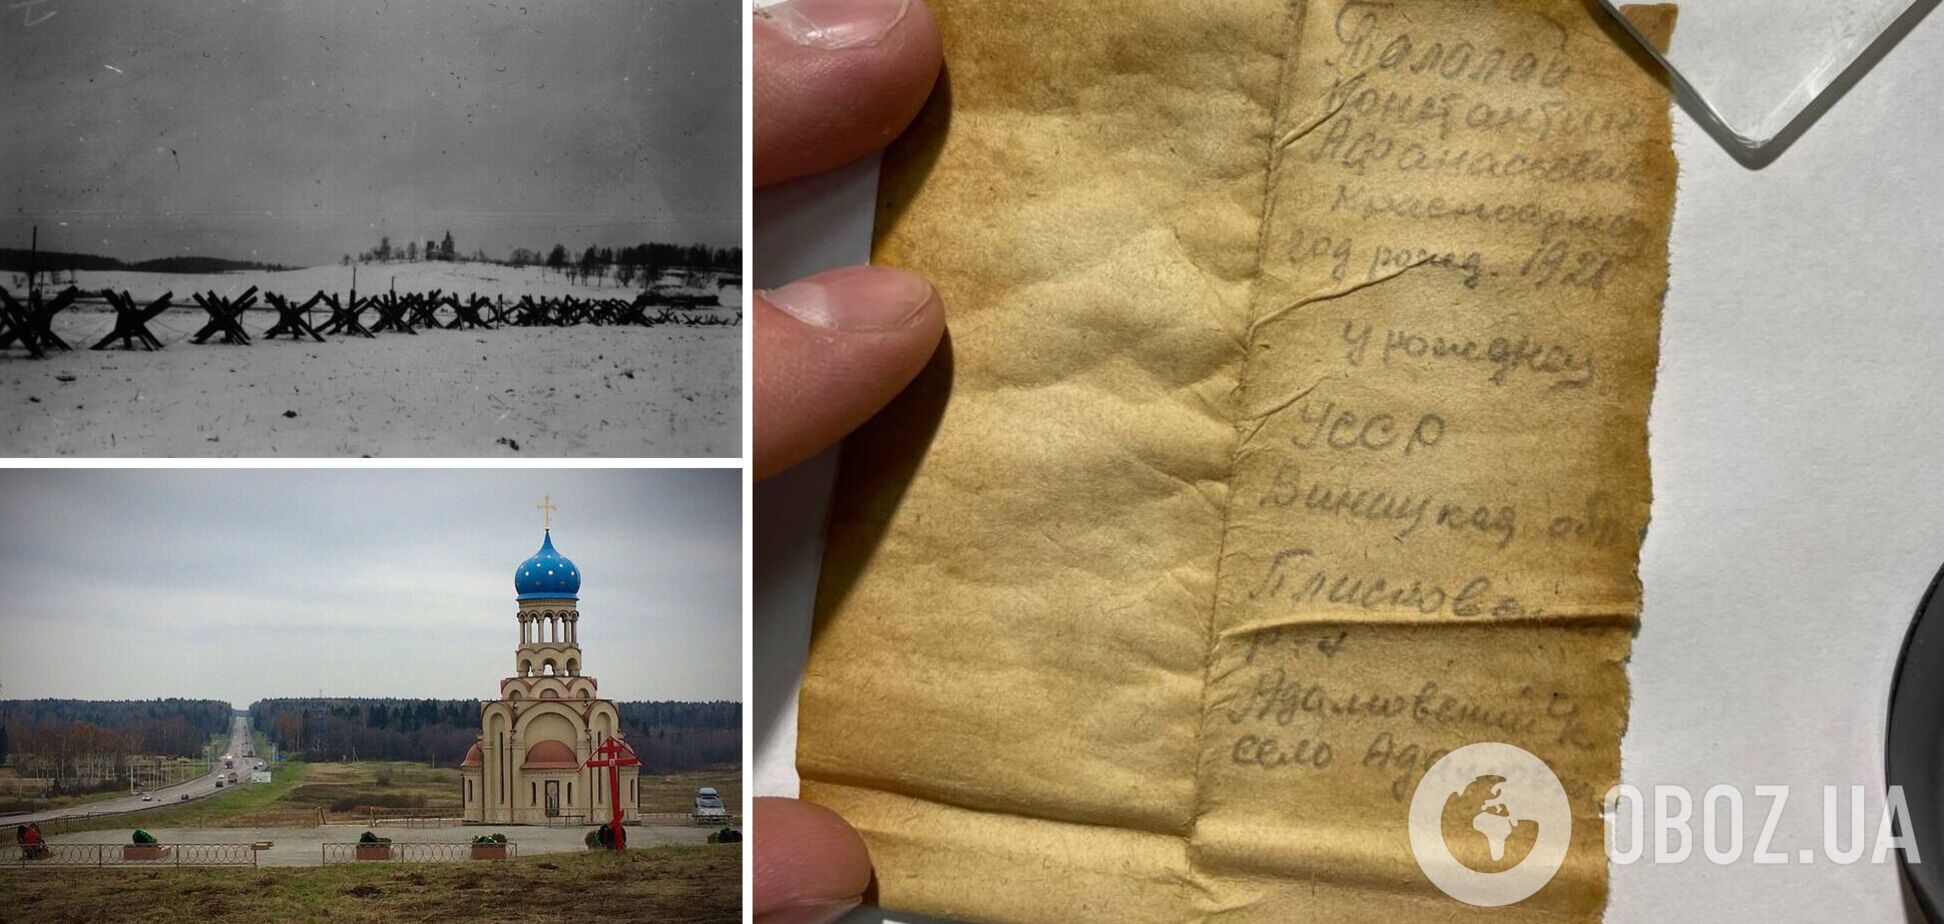 Палалай
Константин
Афанасьевич
Красноарме
год рожд. 192
Уроженец
УССР
Виницкая обл
Плисков
р-н
Адамовский
село Адамов
OBOZ.UA